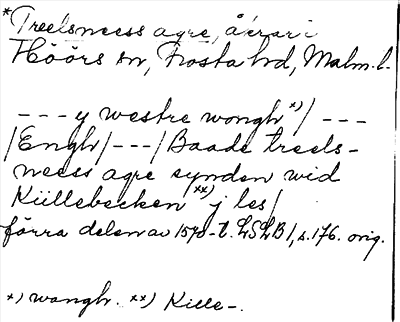 *Treelsneess agre, åkrar i
Höörs sn, Frosta hd, Malm. l.
--- y westre wongh *)/ ---
/Engh/---/Baade treels-
neess agre synden wid
Küllebecken **) j les/
förra delen av 1570-t. LSLB I, s. 176. orig.
*) wangh. **) Kille-.